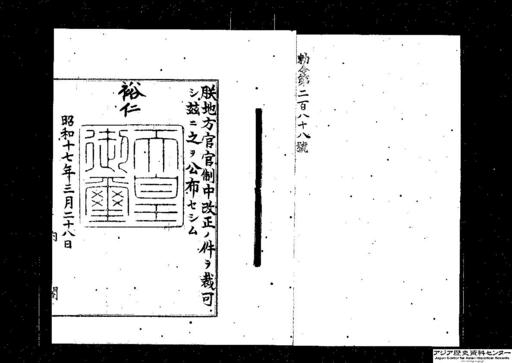 勅令第二百八十八號
朕地方官官制中改正ノ件ヲ裁可
シ茲ニ之ヲ公布セシム
裕仁
天皇御璽
昭和十七年三月二十八日
内閣
アジア歴史資料センター
Japan Center for Asian Historical Records